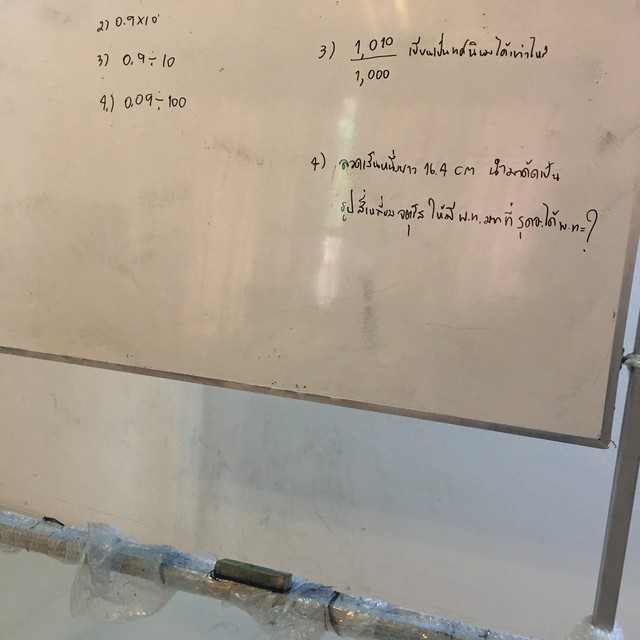 2) 0.9×10
3) 0.9÷10
4) 0.09÷100
3) 1,010 เขียนเป็นทศนิยมได้เท่าไหร่
1,000
4) ลวดเส้นหนึ่งยาว 16.4 cm นำมาดัดเป็น
รูปสี่เหลี่ยมจตุรัส ให้มี พ.ท. มากที่สุดจะได้ พ.ท=?